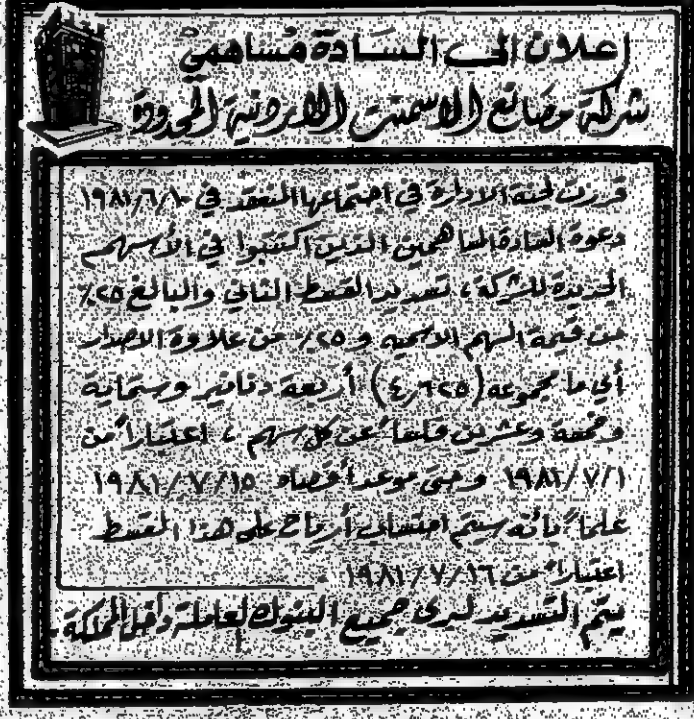 إعلان الى السادة مساهمي
شركة مصانع الاسمنت الاردنية المحدودة
قررت لجنة الادارة في اجتماعها المنعقد في ١٩٨١/٦/٨
دعوة السادة المساهمين الذين اكتتبوا في الأسهم
الجديدة للشركة ، لتسديد القسط الثاني والبالغ ٢٥٪
من قيمة السهم الاسمية و ٢٥٪ من علاوة الاصدار
أي ما مجموعه (٤٫٦٢٥) أربعة دنانير وستماية
وخمسة وعشرين فلساً عن كل سهم ، اعتباراً من
١٩٨١/٧/١ وحتى موعد أقصاه ١٩٨١/٧/١٥
علماً بأنه سيتم احتساب أرباح على هذا القسط
اعتباراً من ١٩٨١/٧/١٦ .
يتم التسديد لدى جميع البنوك العاملة داخل المملكة .